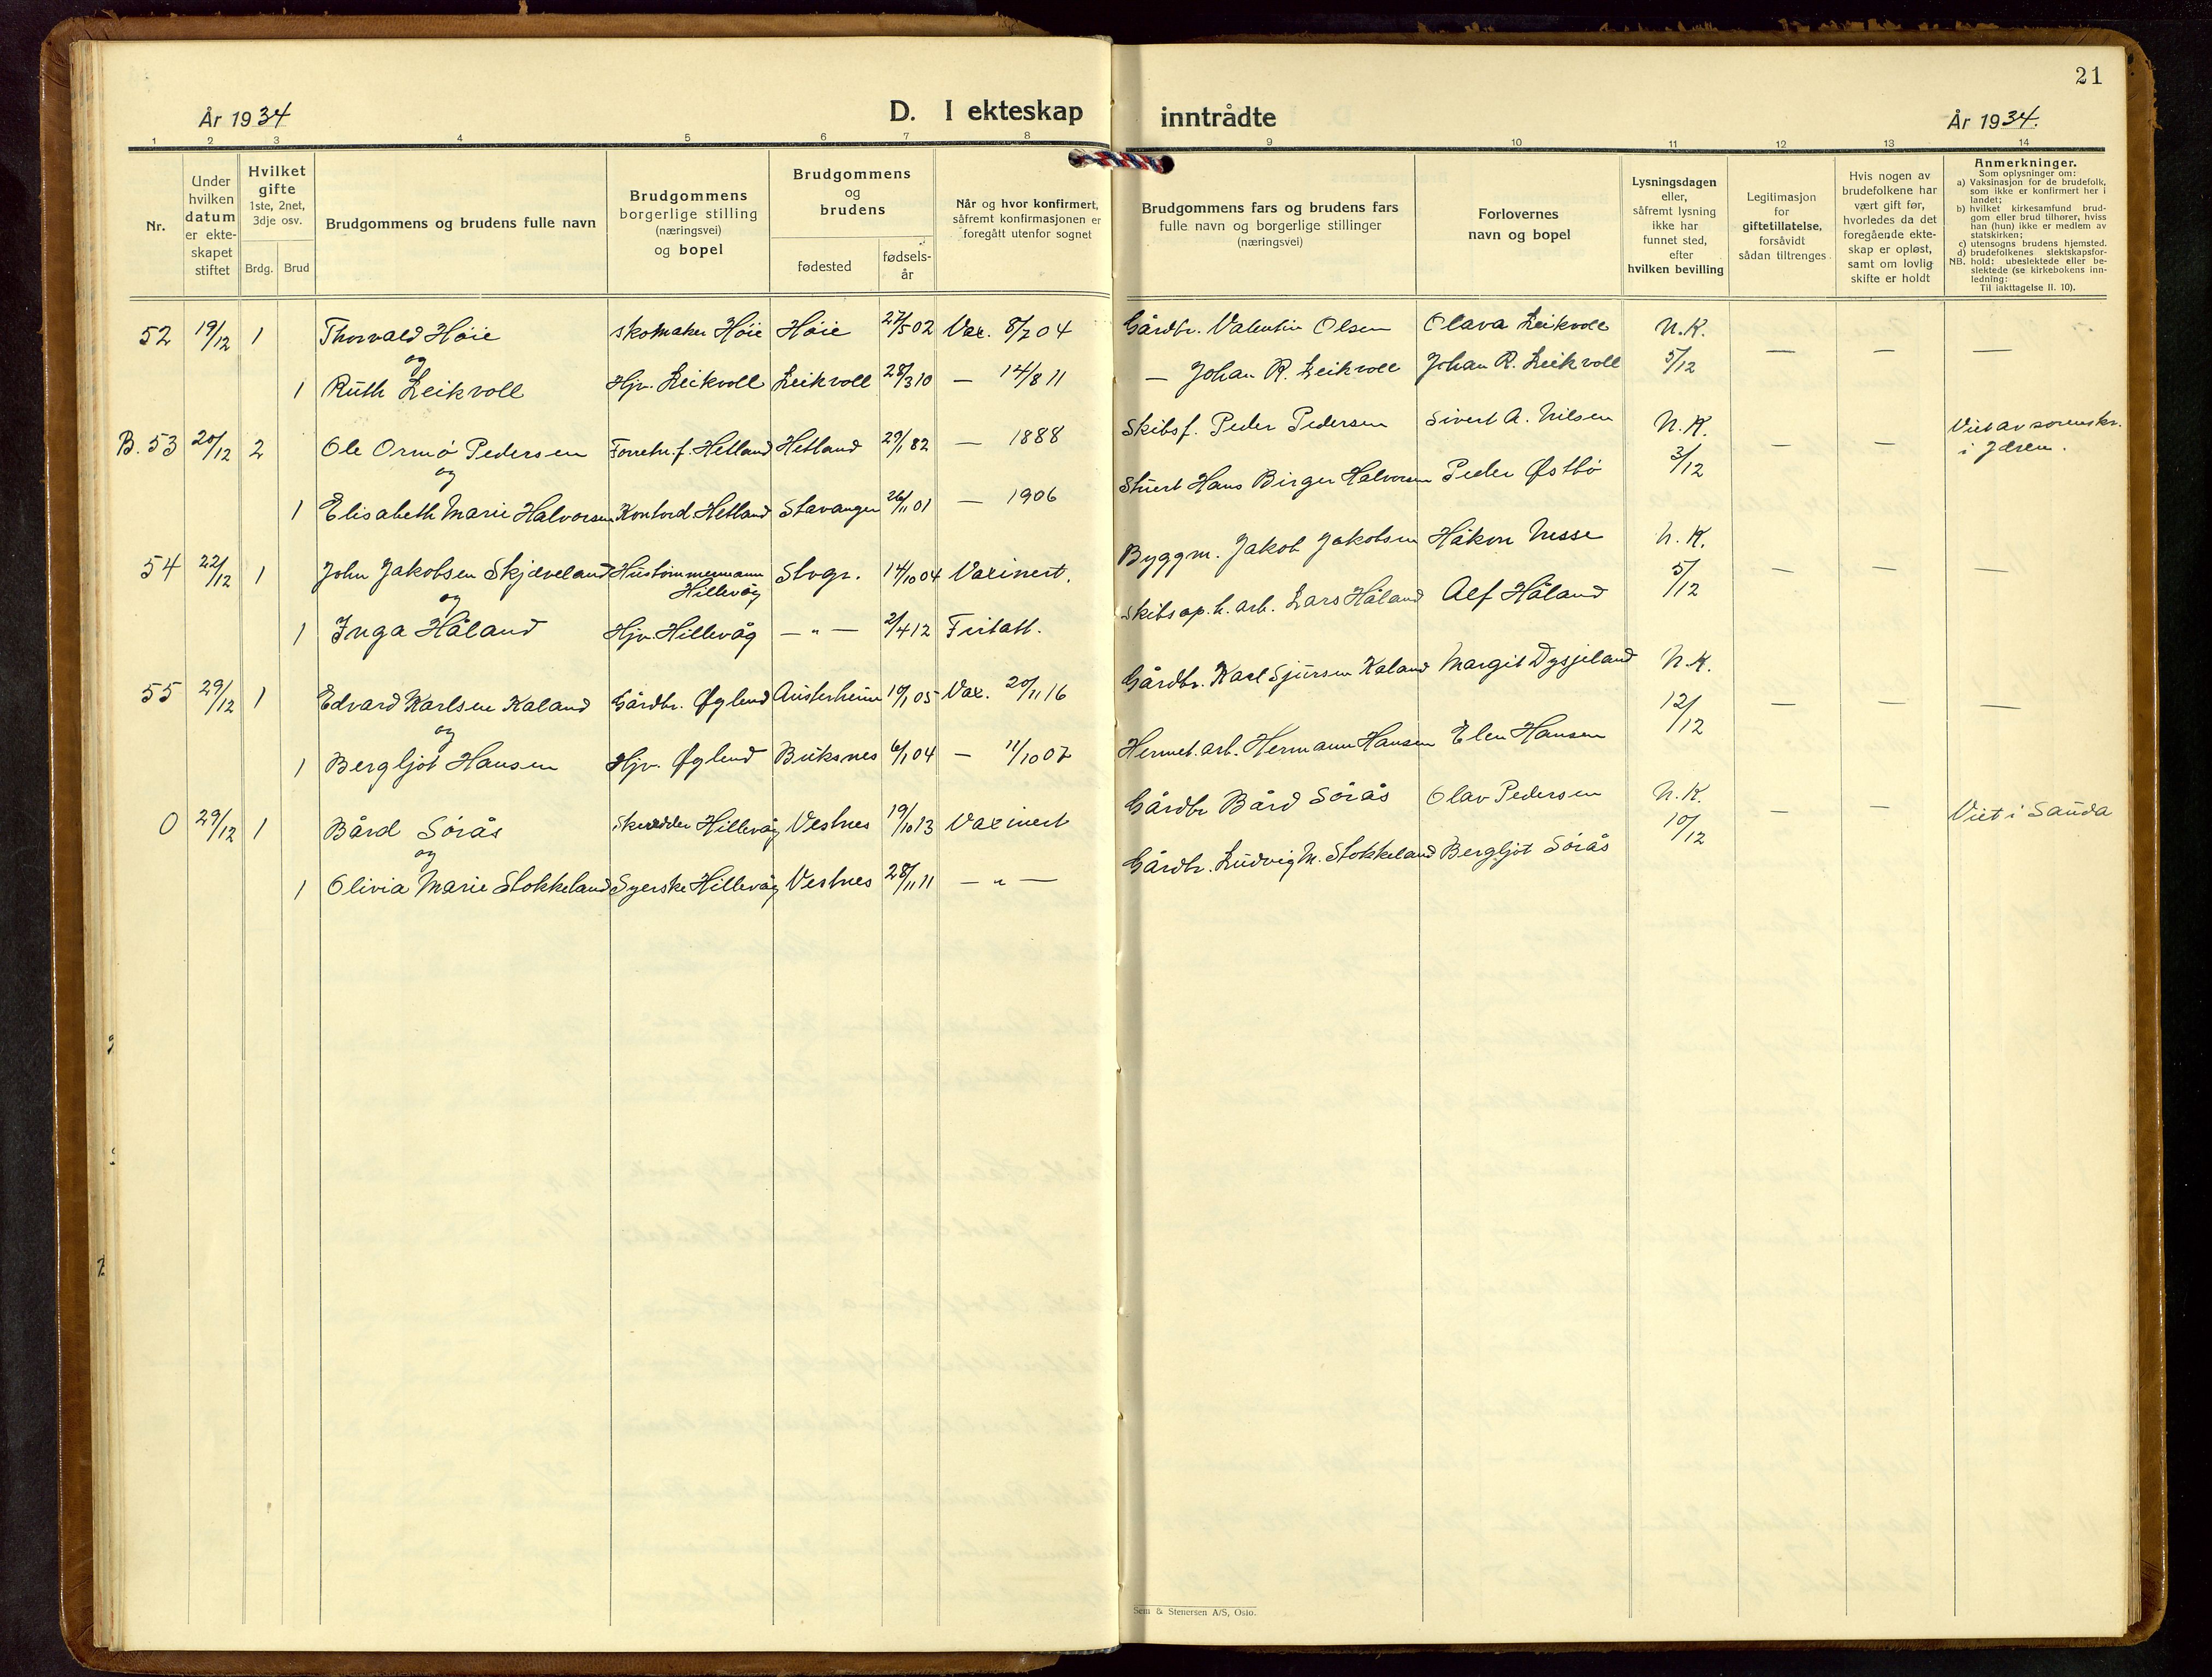 21
År 1934
D. I ekteskap inntrådte
År 1934.
1 2 3 4 5 6 7 8 9 10 11 12 13 14
Nr.
Under hvilken datum er ekteskapet stiftet
Hvilket gifte
1ste, 2net, 3dje osv.
Brdg. Brud
Brudgommens og brudens fulle navn
Brudgommens borgerlige stilling (næringsvei) og bopel
Brudgommens og brudens
fødested
fødsels-år
Når og hvor konfirmert,
såfremt konfirmasjonen er
foregått utenfor sognet
Brudgommens fars og brudens fars
fulle navn og borgerlige stillinger
(næringsvei)
Forlovernes
navn og bopel
Lysningsdagen
eller,
såfremt lysning
ikke har
funnet sted,
efter
hvilken bevilling
Legitimasjon
for
giftetillatelse,
forsåvidt
sådan tiltrenges
Hvis nogen av
brudefolkene har
vært gift før,
hvorledes da det
foregående ekte-
skap er opløst,
samt om lovlig
skifte er holdt
Anmerkninger.
Som oplysninger om:
a) Vaksinasjon for de brudefolk,
som ikke er konfirmert her i
landet;
b) hvilket kirkesamfund brud-
gom eller brud tilhører, hviss
han (hun) ikke er medlem av
statskirken;
c) utensogns brudens hjemsted.
d) brudefolkenes slektskapsfor-
NB. hold: ubeslektede eller be-
slektede (se kirkebokens inn-
ledning:
Til iakttagelse II. 10).
52 19/12 1 Thorvald Höie skomaker Höie Höie 27/5 02 Vax. 8/7 04 Gårdbr. Valentin Olsen Olava Leikvoll N.K. — — —
og
1 Ruth Leikvoll Hjv. Leikvoll Leikvoll 28/3 10 — 14/8 11 — Johan R. Leikvoll Johan R. Leikvoll 5/12
B. 53 20/12 2 Ole Ormö Pedersen Forretn.f. Hetland Hetland 29/1 82 — 1888 Skibsf. Peder Pedersen Sivert A. Nilsen N.K. — — Viet av sorenskr. i Jæren.
og
1 Elisabeth Marie Halvorsen Kontord. Hetland Stavanger 26/11 01 — 1906 Stuert Hans Birger Halvorsen Peder Østbö 3/12
54 22/12 1 John Jakobsen Skjæveland Hustömmermann Hillevåg Stvgr. 14/10 04 Vaxinert. Byggm. Jakob Jakobsen Håkon Nesse N.K. — — —
og
1 Inga Håland Hjv. Hillevåg — " — 2/4 12 Fritatt. Skibsop.h. arb. Lars Håland Alf Håland 5/12
55 29/12 1 Edvard Karlsen Kaland Gårdbr. Øglend Austerheim 14/1 05 Vax. 20/11 16 Gårdbr. Karl Sjursen Kaland Margit Dysjeland N.K. — — —
og
1 Bergljot Hansen Hjv. Øglend Buksnes 6/1 04 — 11/10 07 Hermet. arb. Hermann Hansen Elen Hansen 12/12
0 29/12 1 Bård Sörås Skredder Hillevåg Vestnes 19/10 13 Vaxinert Gårdbr Bård Sörås Olav Pedersen N.K. — — Viet i Sauda
og
1 Olivia Marie Stokkeland Syerske Hillevåg Vestnes 28/11 11 — " — Gårdbr. Ludvig M. Stokkeland Bergljot Sörås 10/12
Sem & Stenersen A/S, Oslo.